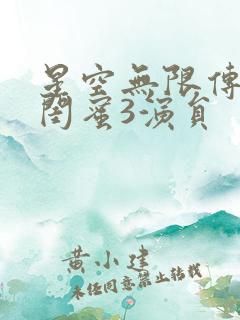 星空無限傳
閨蜜3演員
黄小建
未经同意禁止转载